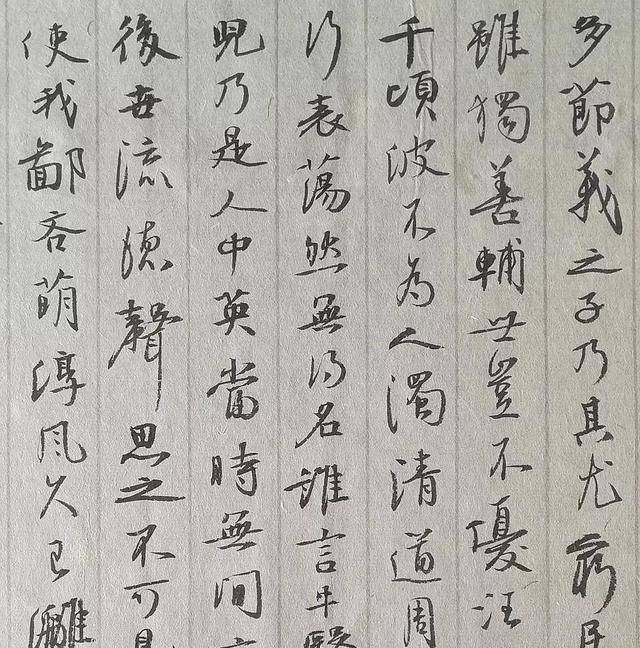 多節義之子乃其尤窮
雖獨善輔世豈不優汪
千頃波不為人濁清道周
行表蕩然無得名誰言牛醫
兒乃是人中英當時無間
後世流德聲思之不可見
使我鄙吝萌淳風久已